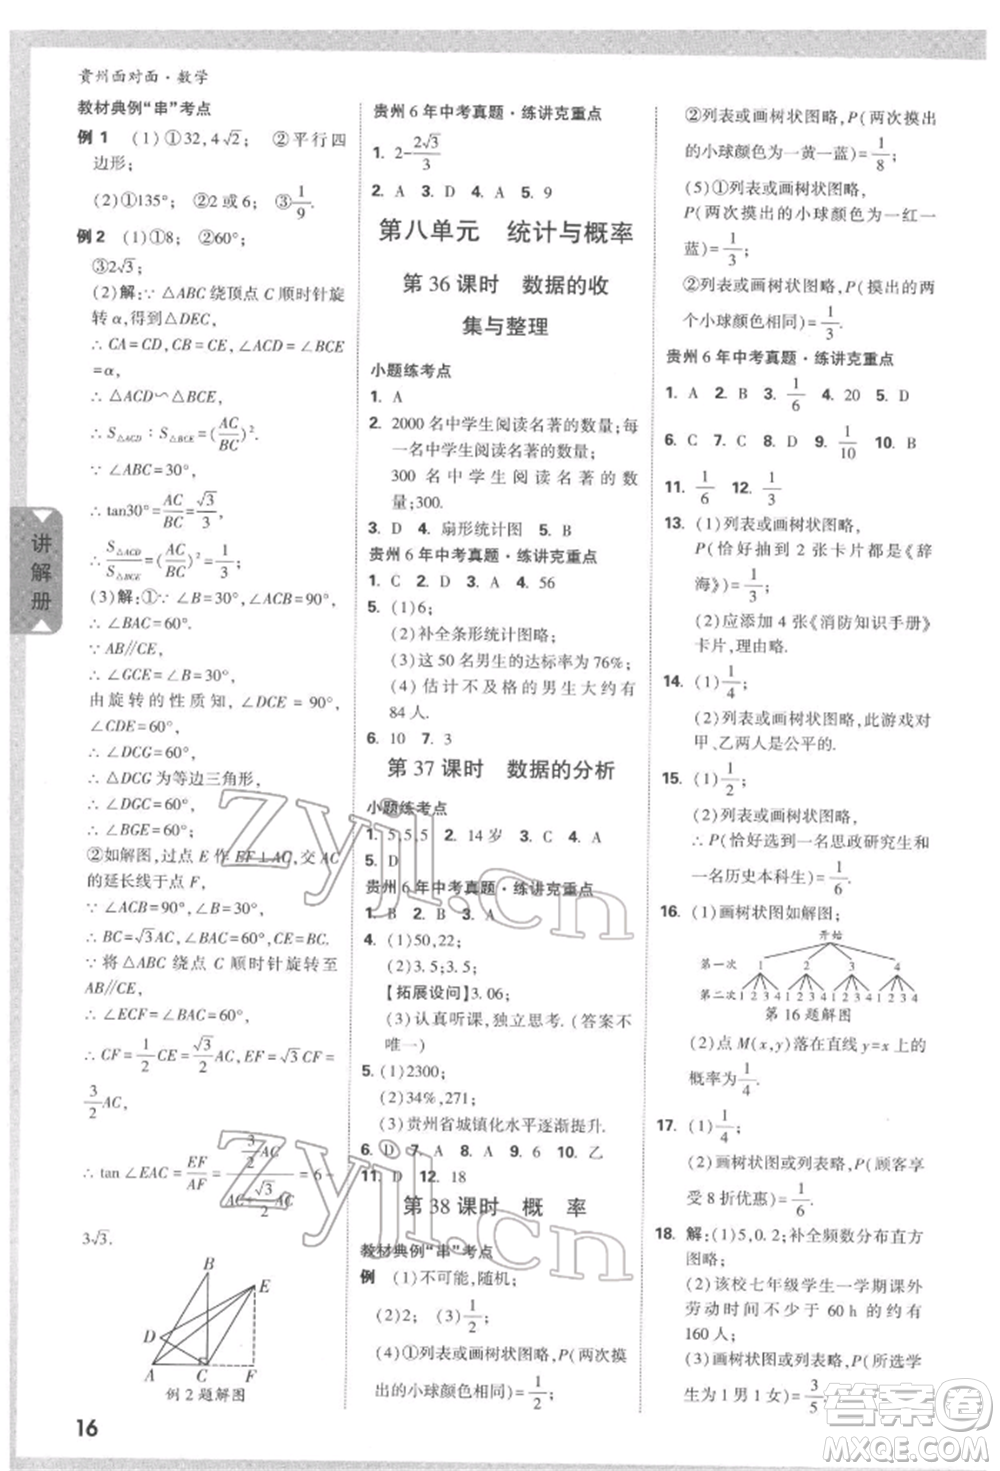 贵州面对面·数学
教材典例“串”考点
例 1 (1)①32,4√2; ②平行四
边形;
(2)①135°; ②2或6; ③1/9.
例 2 (1)①8; ②60°;
③2√3;
(2)解:∵ △ABC 绕顶点 C 顺时针旋
转 α,得到△DEC,
∴ CA=CD,CB=CE,∠ACD=∠BCE
=α,
∴ △ACD∽△BCE,
∴ S△ACD:S△BCE=(AC/BC)².
∵ ∠ABC=30°,
∴ tan30°=AC/BC=√3/3,
∴ S△ACD/S△BCE=(AC/BC)²=1/3;
(3)解:①∵ ∠B=30°,∠ACB=90°,
∴ ∠BAC=60°.
∵ AB//CE,
∴ ∠GCE=∠BAC=60°.
由旋转的性质知,∠DCE=90°,
∠CDE=60°,
∴ ∠DCG=60°,
∴ △DCG为等边三角形,
∴ ∠DGC=60°,
∴ ∠BGE=60°;
②如解图,过点 E 作 EF⊥AC,交 AC
的延长线于点 F,
∵ ∠ACB=90°,∠BAC=60°,
∴ BC=√3AC,∴ CE=√3AC.
∵ 将△ABC 绕点 C 顺时针旋转至
AB//CE,
∴ ∠ECF=∠BAC=60°,
∴ CF=1/2CE=√3/2AC,EF=√3CF=
3/2AC,
∴ tan ∠EAC=EF/AF=(3/2AC)/(AC+√3/2AC)=6-
3√3.
B
E
D
A
C
F
例 2 题解图
16
讲解册
贵州 6 年中考真题·练讲克重点
1. 2-2√3/3
2. A 3. D 4. A 5. 9
第八单元 统计与概率
第 36 课时 数据的收
集与整理
小题练考点
1. A
2. 2000 名中学生阅读名著的数量;每
一名中学生阅读名著的数量;
300 名中学生阅读名著的数
量;300.
3. D 4. 扇形统计图 5. B
贵州 6 年中考真题·练讲克重点
1. C 2. D 3. A 4. 56
5. (1)6;
(2)补全条形统计图略;
(3)这 50 名男生的达标率为 76%;
(4)估计不及格的男生大约有
84 人.
6. 10 7. 3
第 37 课时 数据的分析
小题练考点
1. 5,5,5 2. 14 岁 3. C 4. A
5. D
贵州 6 年中考真题·练讲克重点
1. B 2. B 3. A
4. (1)50,22;
(2)3.5;3.5;
【拓展设问】3.06;
(3)认真听课,独立思考.(答案不
唯一)
5. (1)2300;
(2)34%,271;
(3)贵州省城镇化水平逐渐提升.
6. D 7. A 8. A 9. A 10. 乙
11. D 12. 18
第 38 课时 概 率
教材典例“串”考点
例 (1)不可能,随机;
(2)2; (3)1/2;
(4)①列表或画树状图略,P(两次摸
出的小球颜色相同)=1/2;
②列表或画树状图略,P(两次摸出
的小球颜色为一黄一蓝)=1/8;
(5)①列表或画树状图略,
P(两次摸出的小球颜色为一红一
蓝)=1/3;
②列表或画树状图略,P(摸出的
2 个小球颜色相同)=1/3.
贵州 6 年中考真题·练讲克重点
1. A 2. B 3. 1/6 4. 20 5. D
6. C 7. C 8. D 9. 1/10 10. B
11. 1/6 12. 1/3
13. (1)列表或画树状图略,
P(恰好抽到 2 张卡片都是《辞
海》)=1/6;
(2)应添加 4 张《消防知识手册》
卡片,理由略.
14. (1)1/4;
(2)列表或画树状图略,此游戏对
甲、乙两人是公平的.
15. (1)1/2;
(2)列表或画树状图略,
∴ P(恰好选到一名思政研究生和
一名历史本科生)=1/6.
16. (1)画树状图如解图;
开始
第一次 1 2 3 4
第二次 1 2 3 4 1 2 3 4 1 2 3 4 1 2 3 4
第 16 题解图
(2)点 M(x,y)落在直线 y=x 上的
概率为1/4.
17. (1)1/4;
(2)画树状图或列表略,P(顾客享
受 8 折优惠)=1/6.
18. 解:(1)5,0.2;补全频数分布直方
图略;
(2)该校七年级学生一学期课外
劳动时间不少于 60 h 的约有
160 人;
(3)画树状图或列表略,P(所选学
生为 1 男 1 女)=3/5.
zyjl.cn
zyjl.cn
答案圈
MXQE.COM